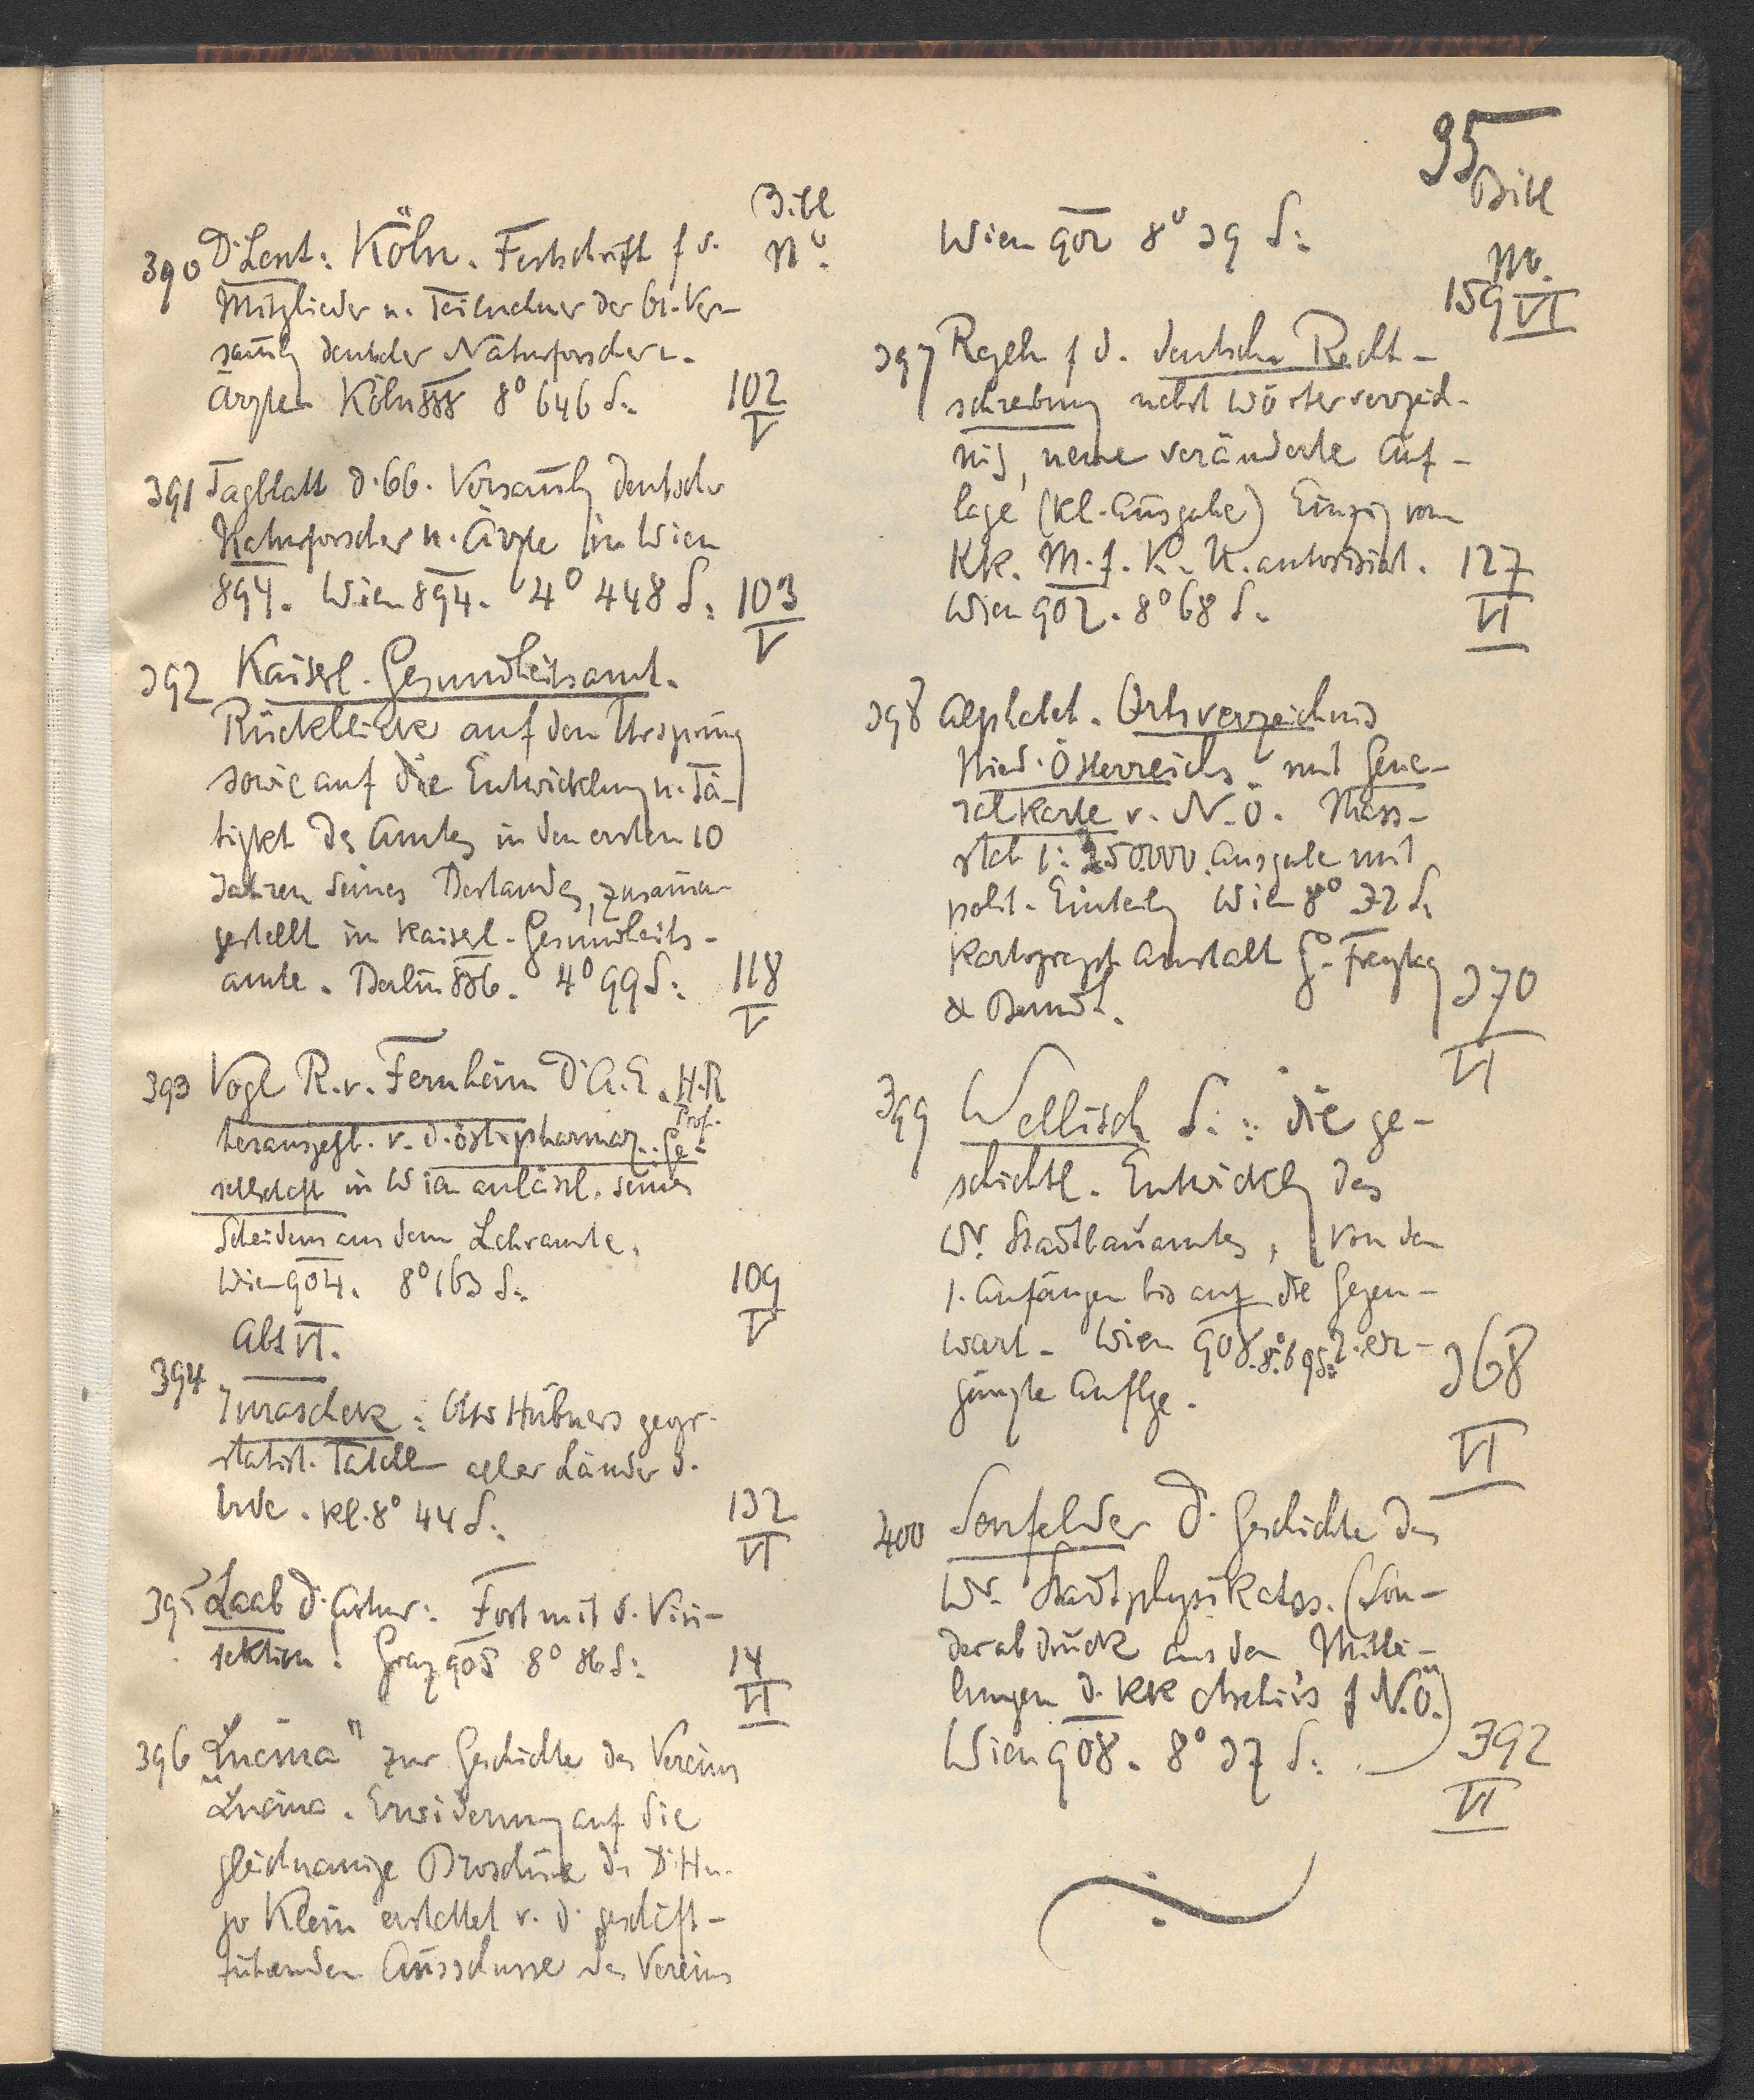 95
Bibl
No.
390 Dr Lent: Köln. Festschrift f d.
Mitglieder u. Teilnehmer der 61. Ver-
samlg deutscher Naturforscher u.
Ärzte. Köln 888 8° 646 S. 102
V
391 Tagblatt d. 66. Versamlg deutscher
Naturforscher u. Ärzte in Wien
894. Wien 894. 4° 448 S. 103
V
392 Kaiserl. Gesundheitsamt.
Rückblick auf den Ursprung
sowie auf die Entwicklung u. Tä-
tigket des Amtes in den ersten 10
Jahren seines Bestandes, zusammen
gestellt im Kaiserl. Gesundheits-
amte. Berlin 886. 4° 99 S. 118
V
393 Vogl R. v. Fernheim Dr A. E. H.R
Prof.
herausgegb. v. d. öst. pharmaz. Ge-
sellschaft in Wien anlässl. seines
Scheidens aus dem Lehramte.
Wien 904. 8° 163 S. 109
V
Abt VI.
394
Juraschek: Otto Hübners geogr.
statist. Tabellen aller Länder d.
Erde. Kl. 8° 44 S. 132
VI
395 Laab Dr. Artur: Fort mit d. Vivi-
sektion. Graz 908 8° 86 S. 14
VI
396 "Lucina" zur Geschichte des Vereins
"Lucina. Erwiderung auf die
gleichnamige Broschüre des Dr Hu-
go Klein erstattet v. d. geschäft-
führenden Ausschusse des Vereins
Wien 902 8° 39 S.
Bibl
No.
159
VI
397 Regeln f d. deutsche Recht-
schreibung nebst Wörterverzeich-
nis, neue veränderte Auf-
lage (Kl. Ausgabe) Einzig vom
Kk. M. f. K. u. U. autorisiert. 127
Wien 902. 8° 68 S. VI
398 Alphabet. Ortsverzeichnis
Nied. Österreichs mit Gene-
ralkarte v. N.Ö. Mass-
stab 1: 250.000. Ausgabe mit
polit. Einteilg Wien 8° 32 S.
Kartograph. Anstalt G. Freytag
& Berndt. 370
VI
399 Wellisch S.: die ge-
schichtl. Entwicklg des
Wr. Stadtbauamtes, von den
1. Anfängen bis auf die Gegen-
wart. Wien 908. 8° 69 S. 2. er-
gänzte Auflge. 368
VI
400 Senfelder Dr. Geschichte des
Wr. Stadtphysikates. (Son-
derabdruck aus den Mittei-
lungen d. KK Archivs f N.Ö.)
Wien 908. 8° 37 S. 392
VI